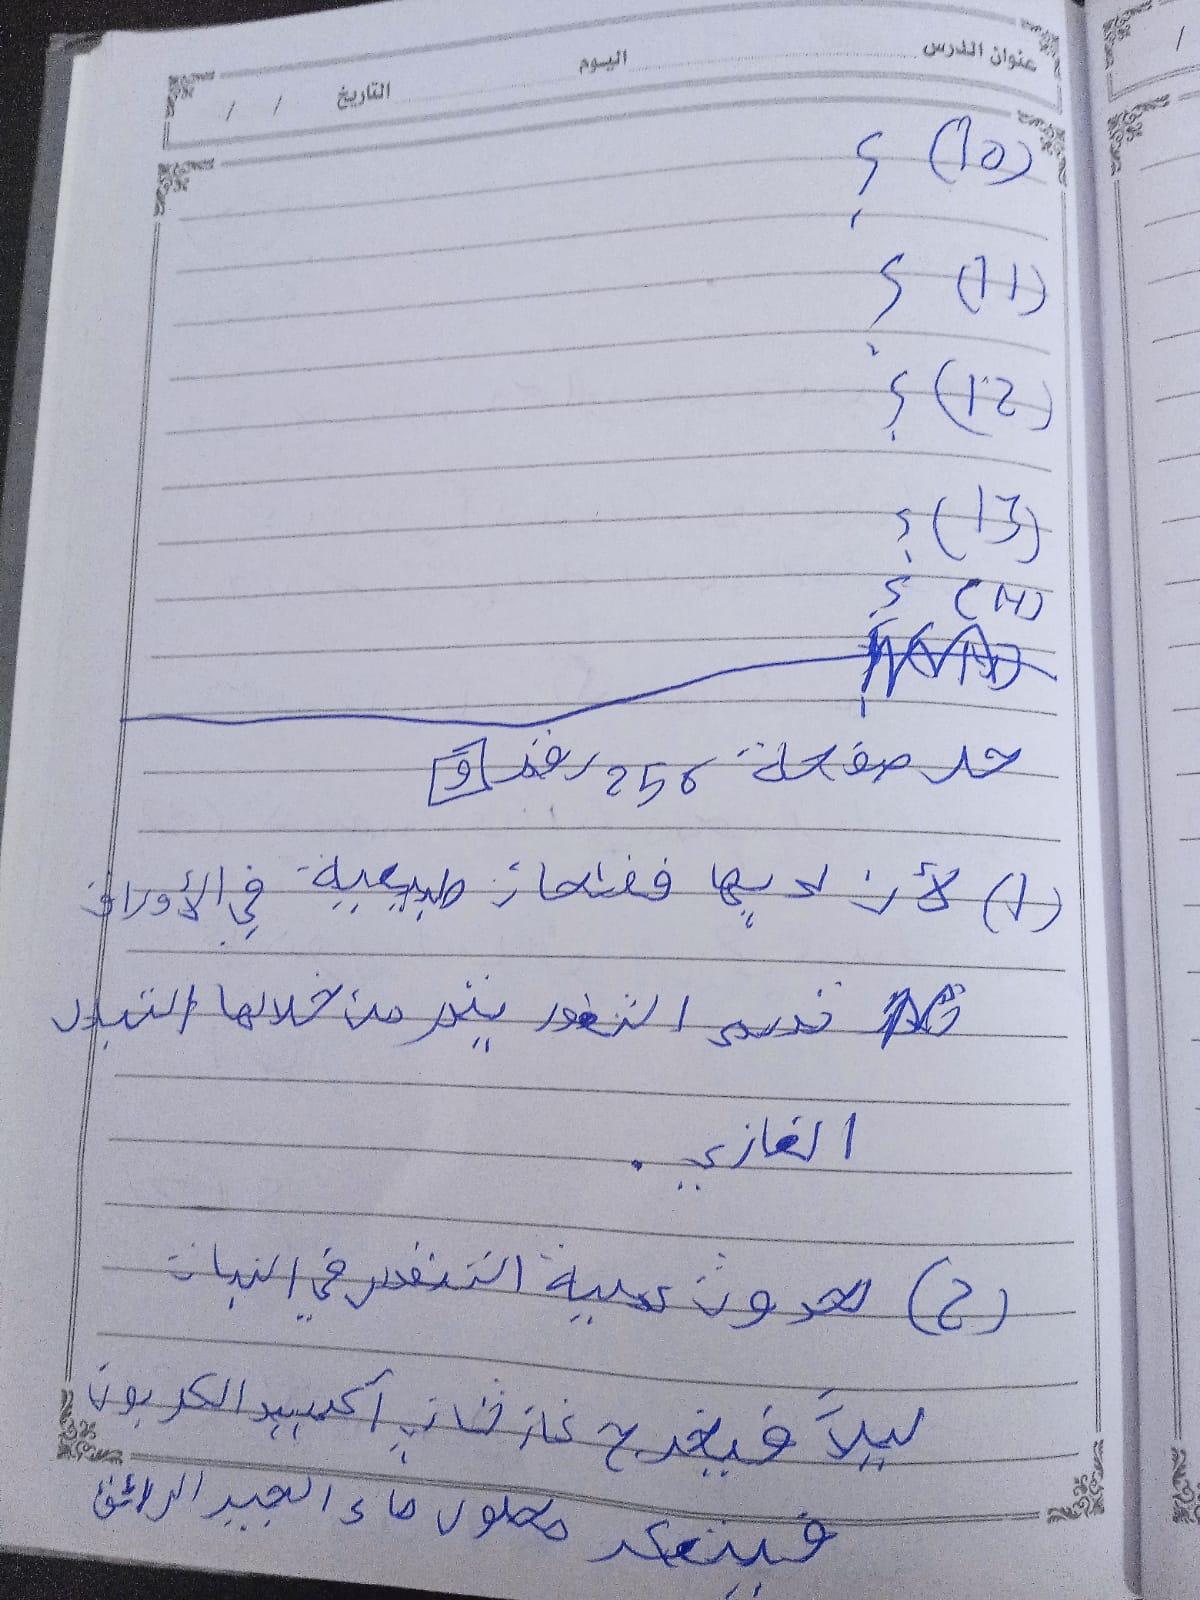 عنوان الدرس اليوم التاريخ / /
(10) ؟
(11) ؟
(12) ؟
(13) ؟
(14) ؟
حل صفحة 256 رقم و
(1) لأن لديها فتحات طبيعية في الأوراق
تسمى الثغور يتم من خلالها التبادل
الغازي .
(2) لحدوث عملية التنفس في النبات
ليلاً فيخرج غاز ثنائي أكسيد الكربون
فيتعكر محلول ماء الجير الرائق